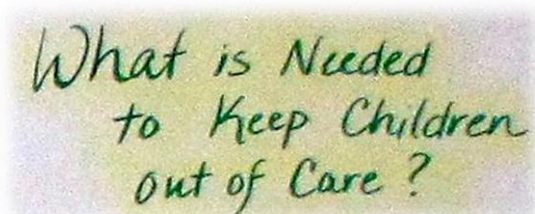 What is Needed
to Keep Children
out of Care ?